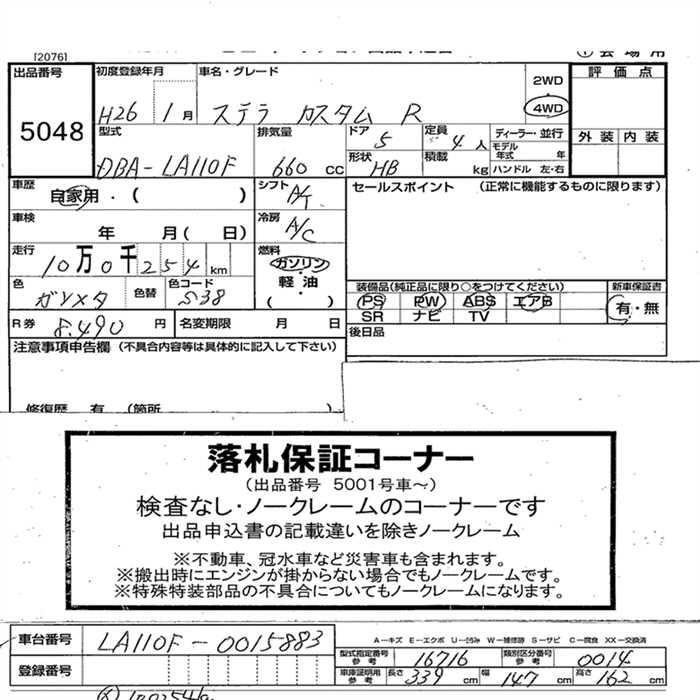 [2076]
出品番号
5048
初度登録年月
H26 1月
車名・グレード
ステラ カスタム R
2WD
4WD
評価点
外装 内装
型式
DBA-LA110F
排気量
660 cc
ドア 5
定員 4人
形状 HB
積載 kg
ディーラー・並行
モデル年式 年
ハンドル 左・右
車歴
自家用・( )
シフト A/T
セールスポイント (正常に機能するものに限ります)
車検
年 月(日)
冷房 A/C
走行
10万0千254km
燃料
ガソリン・軽油・( )
色 ガンメタ
色替
色コード S38
装備品(純正品に限り○をつけてください)
PS PW ABS エアB
SR ナビ TV
新車保証書
有・無
R券 8,490円
名変期限 月 日
後日品
注意事項申告欄 (不具合内容等は具体的に記入して下さい)
修復歴 有 (箇所 )
落札保証コーナー
(出品番号 5001号車〜)
検査なし・ノークレームのコーナーです
出品申込書の記載違いを除きノークレーム
※不動車、冠水車など災害車も含まれます。
※搬出時にエンジンが掛からない場合でもノークレームです。
※特殊特装部品の不具合についてもノークレームになります。
車台番号 LA110F-0015883
A-キズ E-エクボ U-凹み W-補修跡 S-サビ C-腐食 XX-交換済
型式指定番号 参考 16716
類別区分番号 参考 0014
登録番号
車庫証明用 参考 長さ 339 cm 幅 147 cm 高さ 162 cm